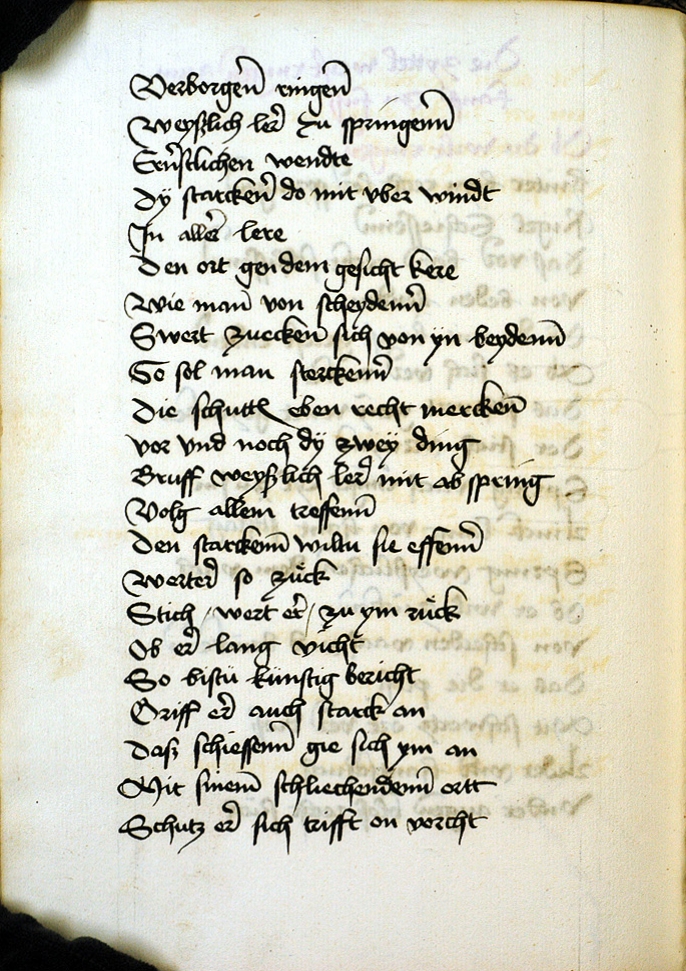 Verborgen̄ ringen̄
Weyßlich ler̄ zu springenn̄
Ern̄stlichen wendte
Dÿ starcken̄ do mit vber windt
In aller̄ lere
Den ort gen dem gesicht kere
Wie man̄ von scheydenn̄
Swert zuecken̄ sich von ÿn beydenn̄
So sol man sterckenn̄
Die schutt eben recht mercken̄
vor vnd noch dÿ zweÿ ding
Bruff weyßlich ler̄ mit ab spring
Volg allem treffenn̄
Den starckenn̄ wiltu sie effenn̄
Werter̄ so zuͤck
Stich / wert er̄ / zu ym ruͤck
Ob er̄ lang vicht
So bistu kuͤnstig bericht
Griff er̄ auch starck an
Daß schiessenn̄ gie sich ym an
Mit sinem̄ schliechendenn̄ ortt
Schutz er̄ sich trifft on vorcht